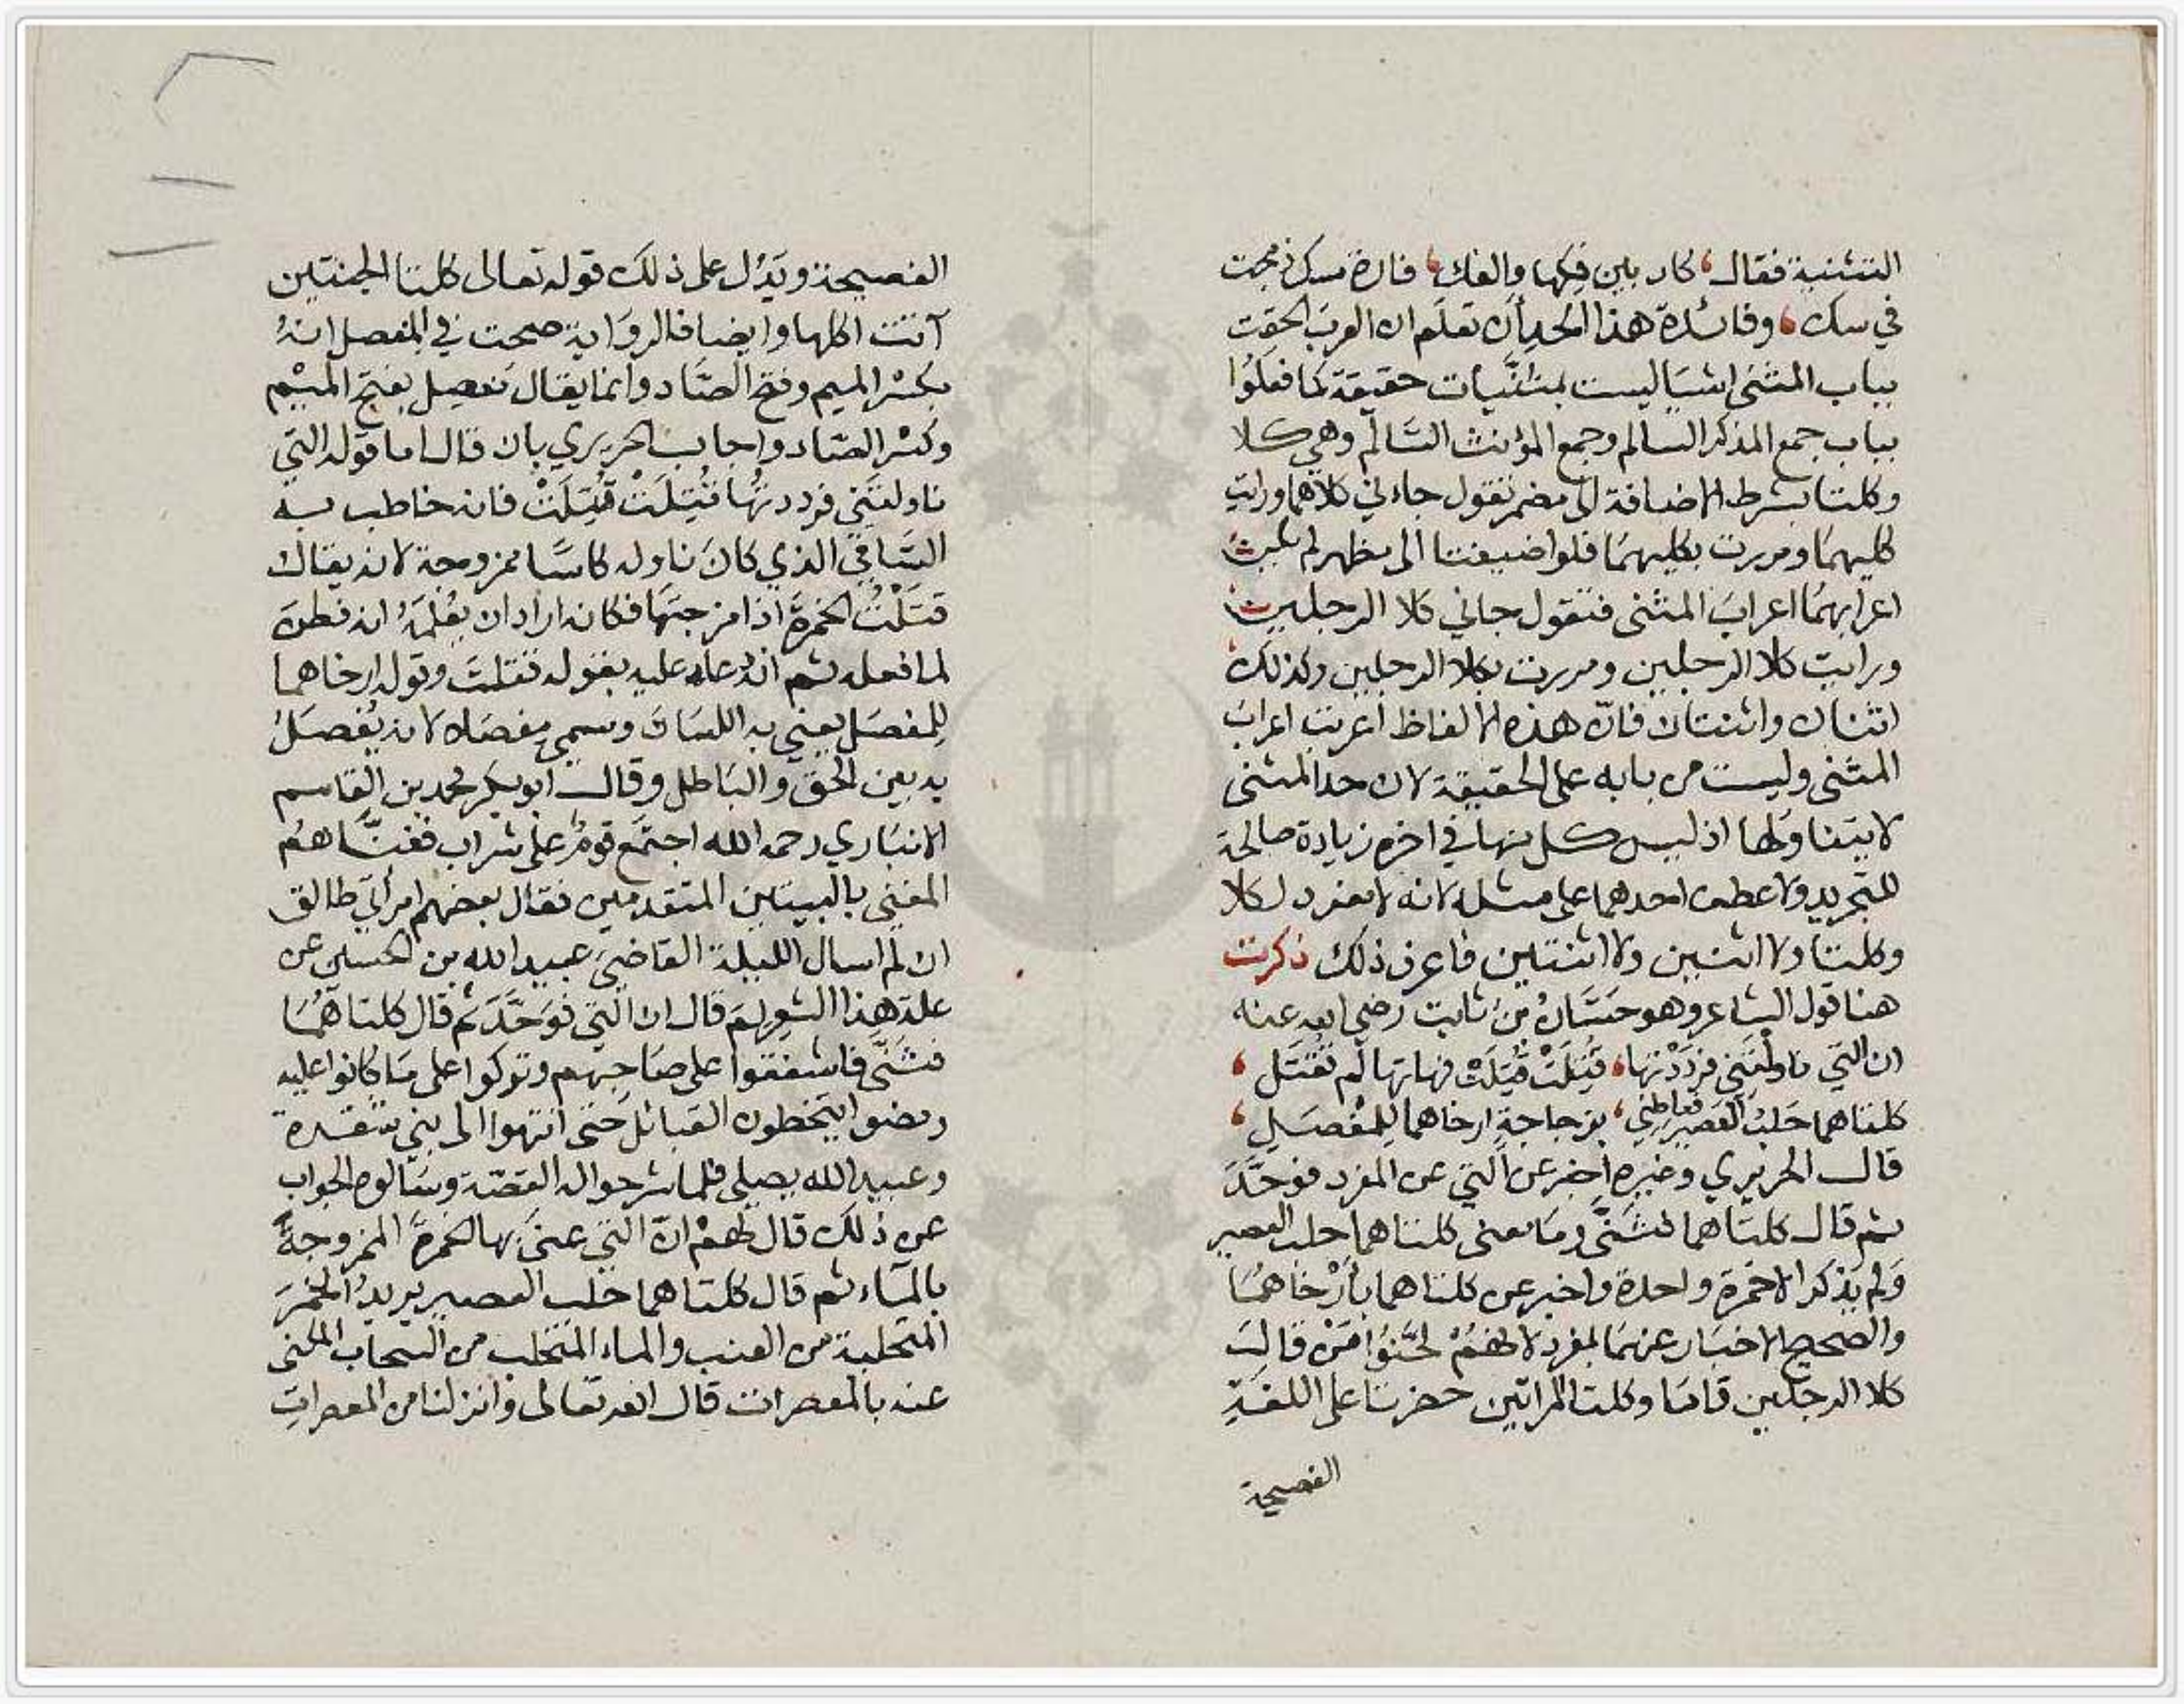 التثنية فقال كان بين فكها والفك فارة مسك ذبحت
في سك وفائدة هذا الحد أن تعلم ان العرب الحقت
بباب المثنى اشيا ليست بمثنيات حقيقة كما فعلوا
بباب جمع المذكر السالم وجمع المؤنث السالم وهي كلا
وكلتا بشرط الاضافة الى مضمر تقول جاءني كلاهما ورايت
كليهما ومررت بكليهما فلو اضيفتا الى مظهر لم يكن
اعرابهما اعراب المثنى فتقول جاني كلا الرجلين
ورايت كلا الرجلين ومررت بكلا الرجلين وكذلك
اثنان واثنتان فان هذه الالفاظ أعربت اعراب
المثنى وليست من بابه على الحقيقة لان حد المثنى
لا يتناولها اذ ليس كل منها في اخره زيادة صالحة
للتجريد ولا عطف احدهما على مثله لانه لا مفرد لكلا
وكلتا ولا اثنين ولا اثنتين فاعرف ذلك ذكرت
هنا قول الشاعر وهو حسان بن ثابت رضي الله عنه
ان التي ناولتني فرددتها قُتِلَتْ قُتِلَتْ فهاتها لم تُقْتَل
كلتاهما حلب العصير فعاطني بزجاجة ارخاهما للمفصل
قال الحريري وغيره أخبر عن التي عن المفرد فوحَّد
ثم قال كلتاهما فثنَّى وما معنى كلتاهما حلب العصير
ولم يذكر الا خمرة واحدة واخبر عن كلتاهما بأرخاهما
والصحيح الاخبار عنهما بمفرد لانهم لحَّنوا من قال
كلا الرجلين قاما وكلتا المراتين حضرتا على اللغة
الفصيحة
الفصيحة ويدل على ذلك قوله تعالى كلتا الجنتين
آتت اكلها وايضا فالرواية صحت في المفصل انه
بكسر الميم وفتح الصاد وانما يقال مفصِل بفتح الميم
وكسر الصاد واجاب الحريري بان قال اما قوله التي
ناولتني فرددتها قُتِلَتْ قُتِلَتْ فانه خاطب به
الساقي الذي كان ناوله كاسا ممزوجة لانه يقال
قتلْتُ الخمرة اذا مزجتها فكانه اراد ان يعلمه انه فطن
لما فعله ثم انه دعا عليه بقوله قتلت وقوله ارخاهما
للمفصل يعني به اللسان وسمي مفصلا لانه يُفصل
به بين الحق والباطل وقال ابو بكر محمد بن القاسم
الانباري رحمه الله اجتمع قوم على شراب فغنَّاهم
المغني بالبيتين المتقدمين فقال بعضهم امراتي طالق
ان لم اسال الليلة القاضي عبيد الله بن الحسن عن
علة هذا الشعر لم قال ان التي فوحَّد ثم قال كلتاهما
فثنَّى فاشفقوا على صاحبهم وتركوا على ما كانوا عليه
ومضوا يتخطون القبائل حتى انتهوا الى بني شقرة
وعبيد الله يصلي فلما شرحوا له القصة وسالوه الجواب
عن ذلك قال لهم انّ التي عنى بها الخمرة الممزوجة
بالماء ثم قال كلتاهما حلب العصير يريد الخمر
المتحلبة من العنب والماء المتحلب من السحاب المكنى
عنه بالمعصرات قال الله تعالى وانزلنا من المعصرات